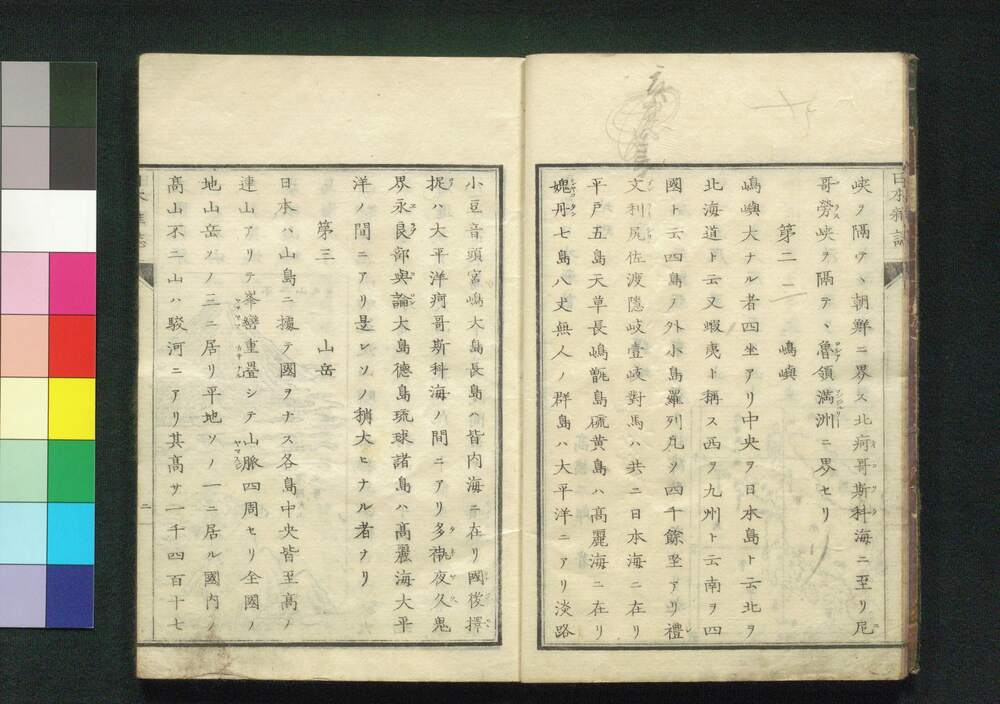 日本雜誌
峽ヲ隔ツヽ朝鮮ニ界ス北疴哥斯科海ニ至リ尼
哥勞峽ヲ隔テヽ魯領滿洲ニ界セリ
第二 嶋嶼
嶋嶼大ナル者四坐アリ中央ヲ日本島ト云北ヲ
北海道ト云又蝦夷ト稱ス西ヲ九州ト云南ヲ四
國ト云四島ノ外小島羅列凡ソ四千餘坐アリ禮
文利尻佐渡隱岐壹岐對馬ハ共ニ日本海ニ在リ
平戸五島天草長嶋甑島硫黄島ハ高麗海ニ在リ
媿丹七島八丈無人ノ群島ハ大平洋ニアリ淡路
小豆音頭宮嶋大島長島ハ皆内海ニ在リ國後擇
捉ハ大平洋疴哥斯科海ノ間ニアリ多祂夜久鬼
界永良部與論大島德島琉球諸島ハ高麗海大平
洋ノ間ニアリ是レソノ稍大ヒナル者ナリ
第三 山岳
日本ハ山島ニ據テ國ヲナス各島中央皆至高ノ
連山アリテ峯巒重疊シテ山脈四周セリ全國ノ
地山岳ソノ三ニ居リ平地ソノ一ニ居ル國内ノ
高山不二山ハ駿河ニアリ其高サ一千四百十七
二